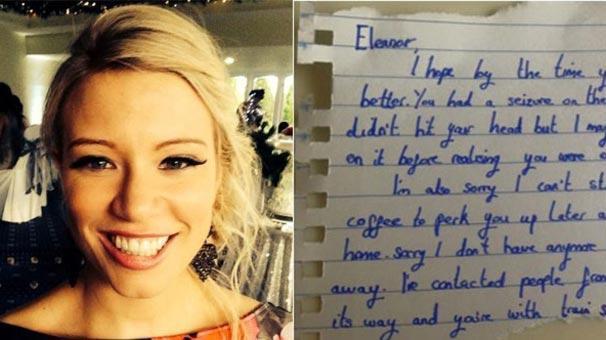 Eleanor,
I hope by the time
better. You had a seizure on the
didn't hit your head but I may
on it before realising you were
I'm also sorry I can't
coffee to perk you up later
home. Sorry I don't have anymore
away. I've contacted people from
its way and you're with train